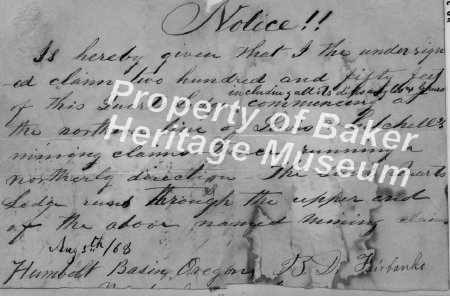 Notice!!
Is hereby given that I the undersign
ed claim two hundred and fifty feet
including all its dips and
of this Quartz commencing at
the northern line of
mining claims running in
northerly direction The said Quartz
Ledge runs through the upper end
of the above named mining claim
Aug 5th/68
Humbolt Basin, Oregon B. D. Fairbanks
Property of Baker
Heritage Museum